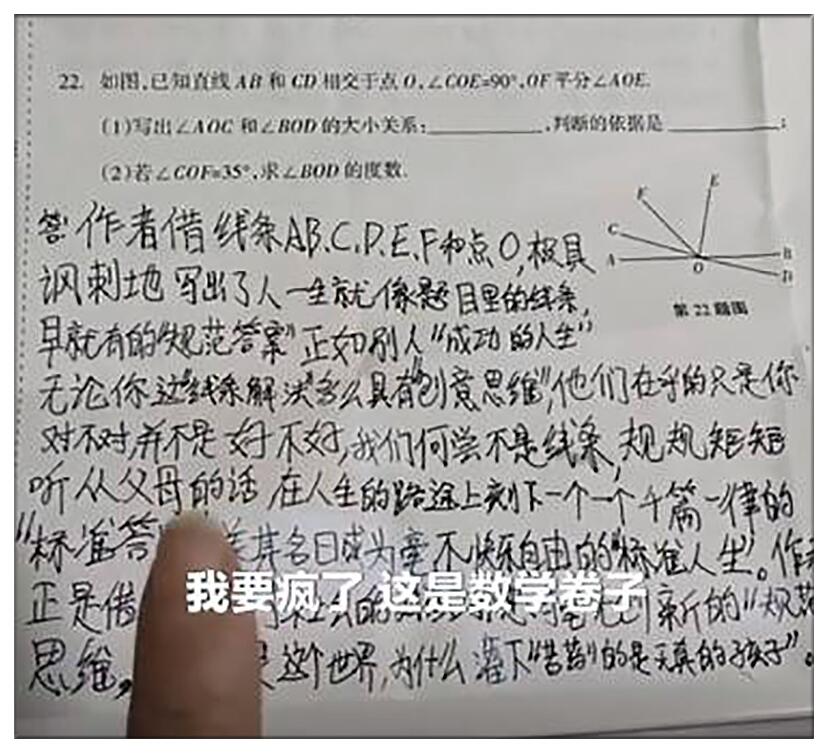 22. 如图,已知直线AB和CD相交于点O,∠COE=90°,OF平分∠AOE.
(1)写出∠AOC和∠BOD的大小关系:__________,判断的依据是__________;
(2)若∠COF=35°,求∠BOD的度数.
F
E
C
A
O
B
D
第22题图
答:作者借线条AB、C、D、E、F和点O,极具
讽刺地写出了人一生就像题目里的线条,
早就有的"规范答案"正如别人"成功的人生"
无论你这"线条解法"多么具有"创意思维",他们在乎的只是你
对不对,并不是好不好,我们何尝不是线条,规规矩矩
听从父母的话,在人生的路途上刻下一个一个千篇一律的
"标准答 美其名曰成为毫不快乐自由的"标准人生"。作
正是借 新的"规范
思维, 这个世界,为什么灌下"苦药"的是天真的孩子"。
我要疯了 这是数学卷子